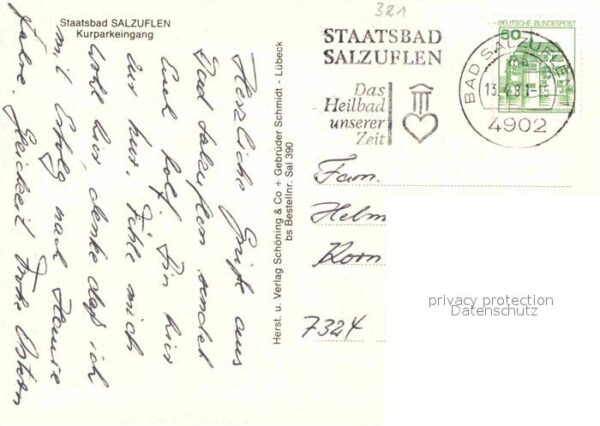 Staatsbad SALZUFLEN
Kurparkeingang
Herzliche Grüße aus
Bad Salzuflen sendet
Euch Rolf. Bin hier
zur Kur. Fühle mich
wohl hier, denke daß ich
mit Erfolg nach Hause
fahre. Gleichzeit Frohe Ostern
Herst. u. Verlag Schöning & Co + Gebrüder Schmidt - Lübeck
bs Bestellnr. Sal 390
321
STAATSBAD
SALZUFLEN
Das
Heilbad
unserer
Zeit
DEUTSCHE BUNDESPOST
BAD SALZUFLEN
4902
Fam.
Helm
Korn
7324
privacy protection
Datenschutz